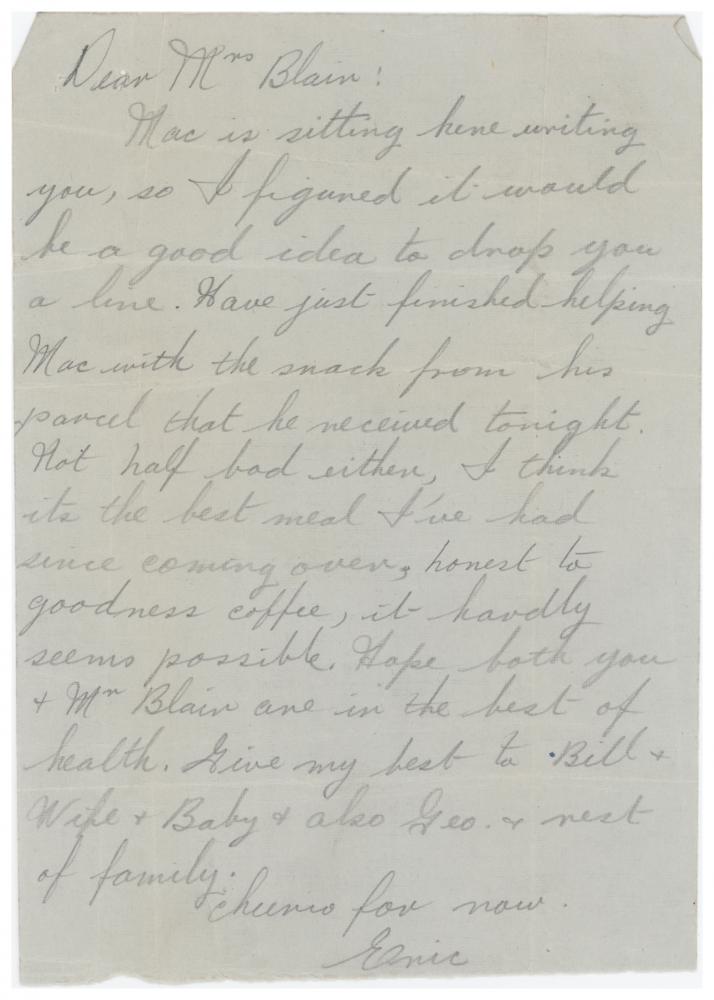 Dear Mrs Blair:
Mac is sitting here writing
you, so I figured it would
be a good idea to drop you
a line. Have just finished helping
Mac with the snack from his
parcel that he received tonight.
Not half bad either, I think
its the best meal I've had
since coming over, honest to
goodness coffee, it hardly
seems possible. Hope both you
+ Mr Blair are in the best of
health. Give my best to Bill +
Wife + Baby + also Geo. + rest
of family.
Cheerio for now.
Eric